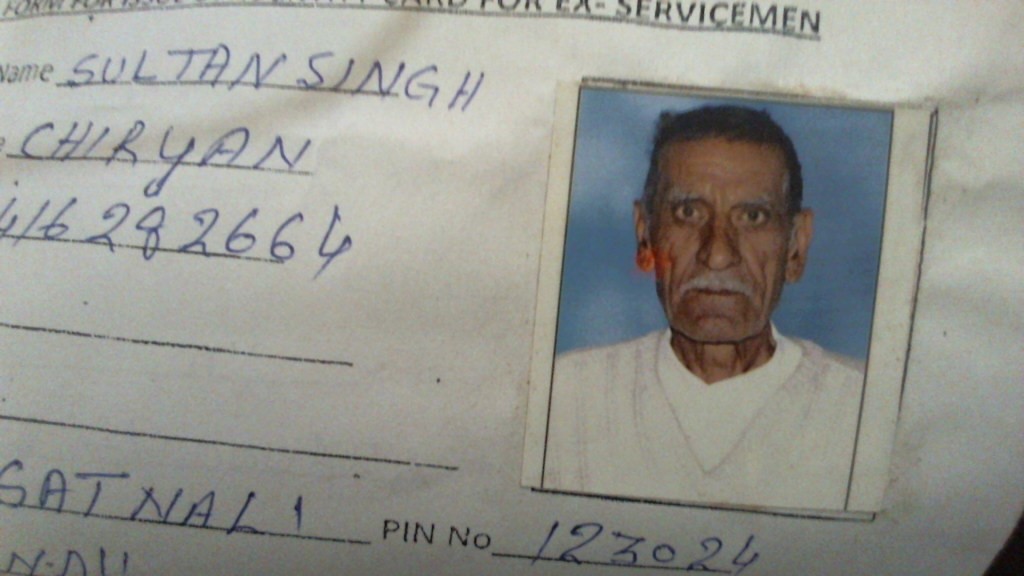 FORM FOR ISSUE OF IDENTITY CARD FOR EX- SERVICEMEN
Name SULTAN SINGH
CHIRYAN
416282664
SATNALI PIN No 123024